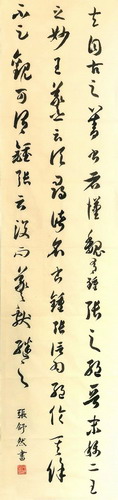 夫自古之善書者漢魏有鍾張之絕晉末稱二王
之妙王羲之云頃尋諸名書鍾張信為絕倫其餘
不足觀可謂鍾張云沒而羲獻繼之
張舒然書